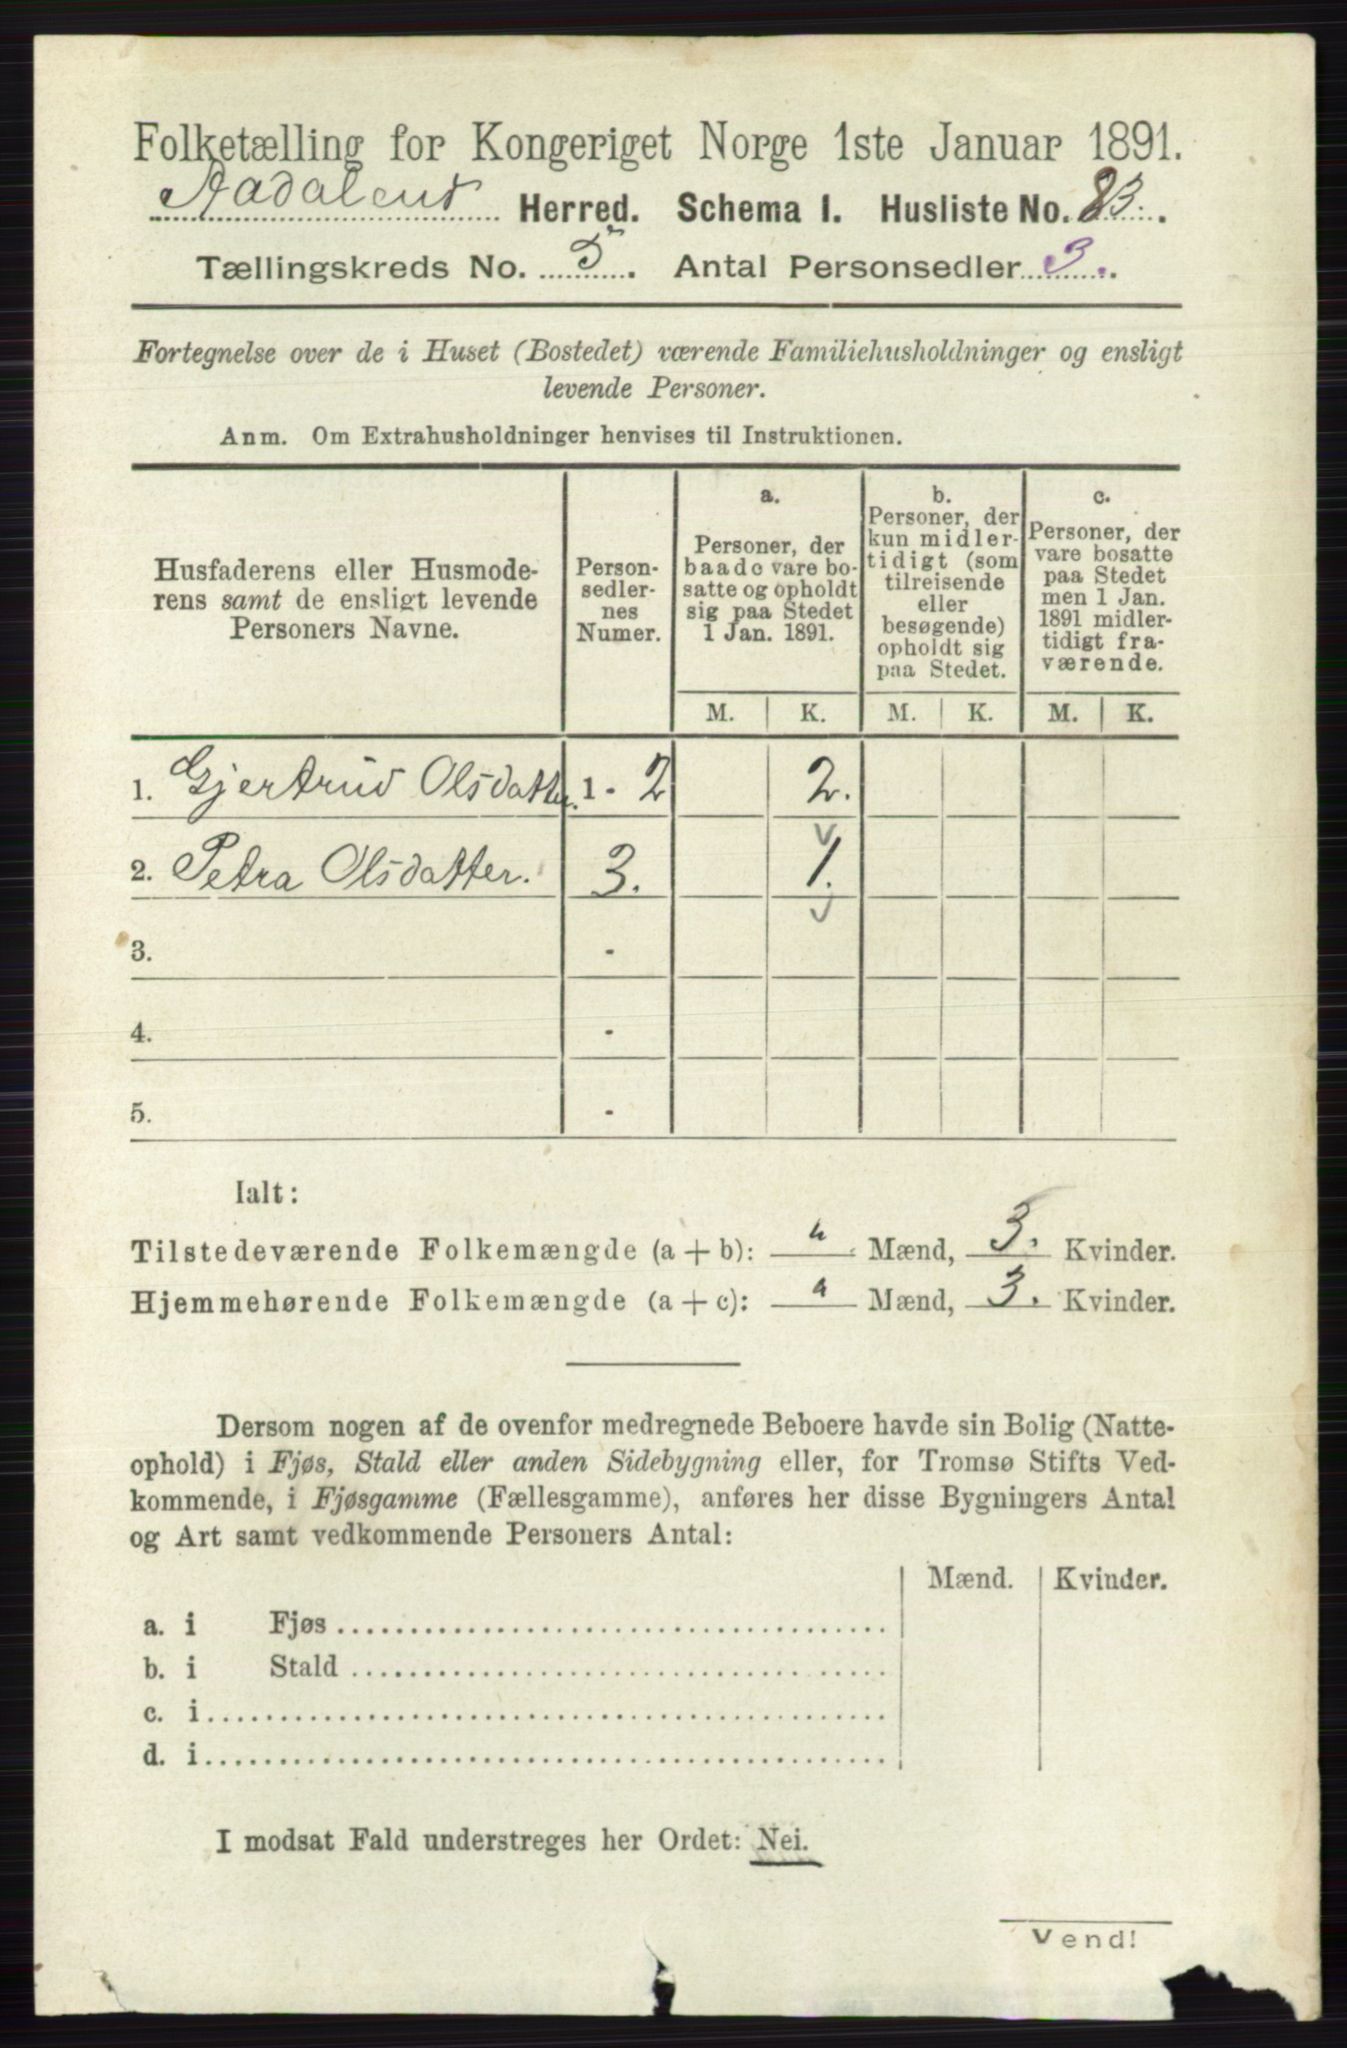 Folketælling for Kongeriget Norge 1ste Januar 1891.
Aadalens Herred. Schema I. Husliste No. 83.
Tællingskreds No. 5. Antal Personsedler 3.
Fortegnelse over de i Huset (Bostedet) værende Familiehusholdninger og ensligt
levende Personer.
Anm. Om Extrahusholdninger henvises til Instruktionen.
Husfaderens eller Husmode-
rens samt de ensligt levende
Personers Navne.
Person-
sedler-
nes
Numer.
a.
Personer, der
baade vare bo-
satte og opholdt
sig paa Stedet
1 Jan. 1891.
b.
Personer, der
kun midler-
tidigt (som
tilreisende
eller
besøgende)
opholdt sig
paa Stedet.
c.
Personer, der
vare bosatte
paa Stedet
men 1 Jan.
1891 midler-
tidigt fra-
værende.
M. K. M. K. M. K.
1. Gjertrud Olsdatter. 1 - 2 2.
2. Petra Olsdatter. 3. 1.
3. -
4. -
5. -
Ialt:
Tilstedeværende Folkemængde (a + b): Mænd, 3. Kvinder.
Hjemmehørende Folkemængde (a + c): Mænd, 3. Kvinder.
Dersom nogen af de ovenfor medregnede Beboere havde sin Bolig (Natte-
ophold) i Fjøs, Stald eller anden Sidebygning eller, for Tromsø Stifts Ved-
kommende, i Fjøsgamme (Fællesgamme), anføres her disse Bygningers Antal
og Art samt vedkommende Personers Antal:
Mænd. Kvinder.
a. i Fjøs
b. i Stald
c. i
d. i
I modsat Fald understreges her Ordet: Nei.
Vend!